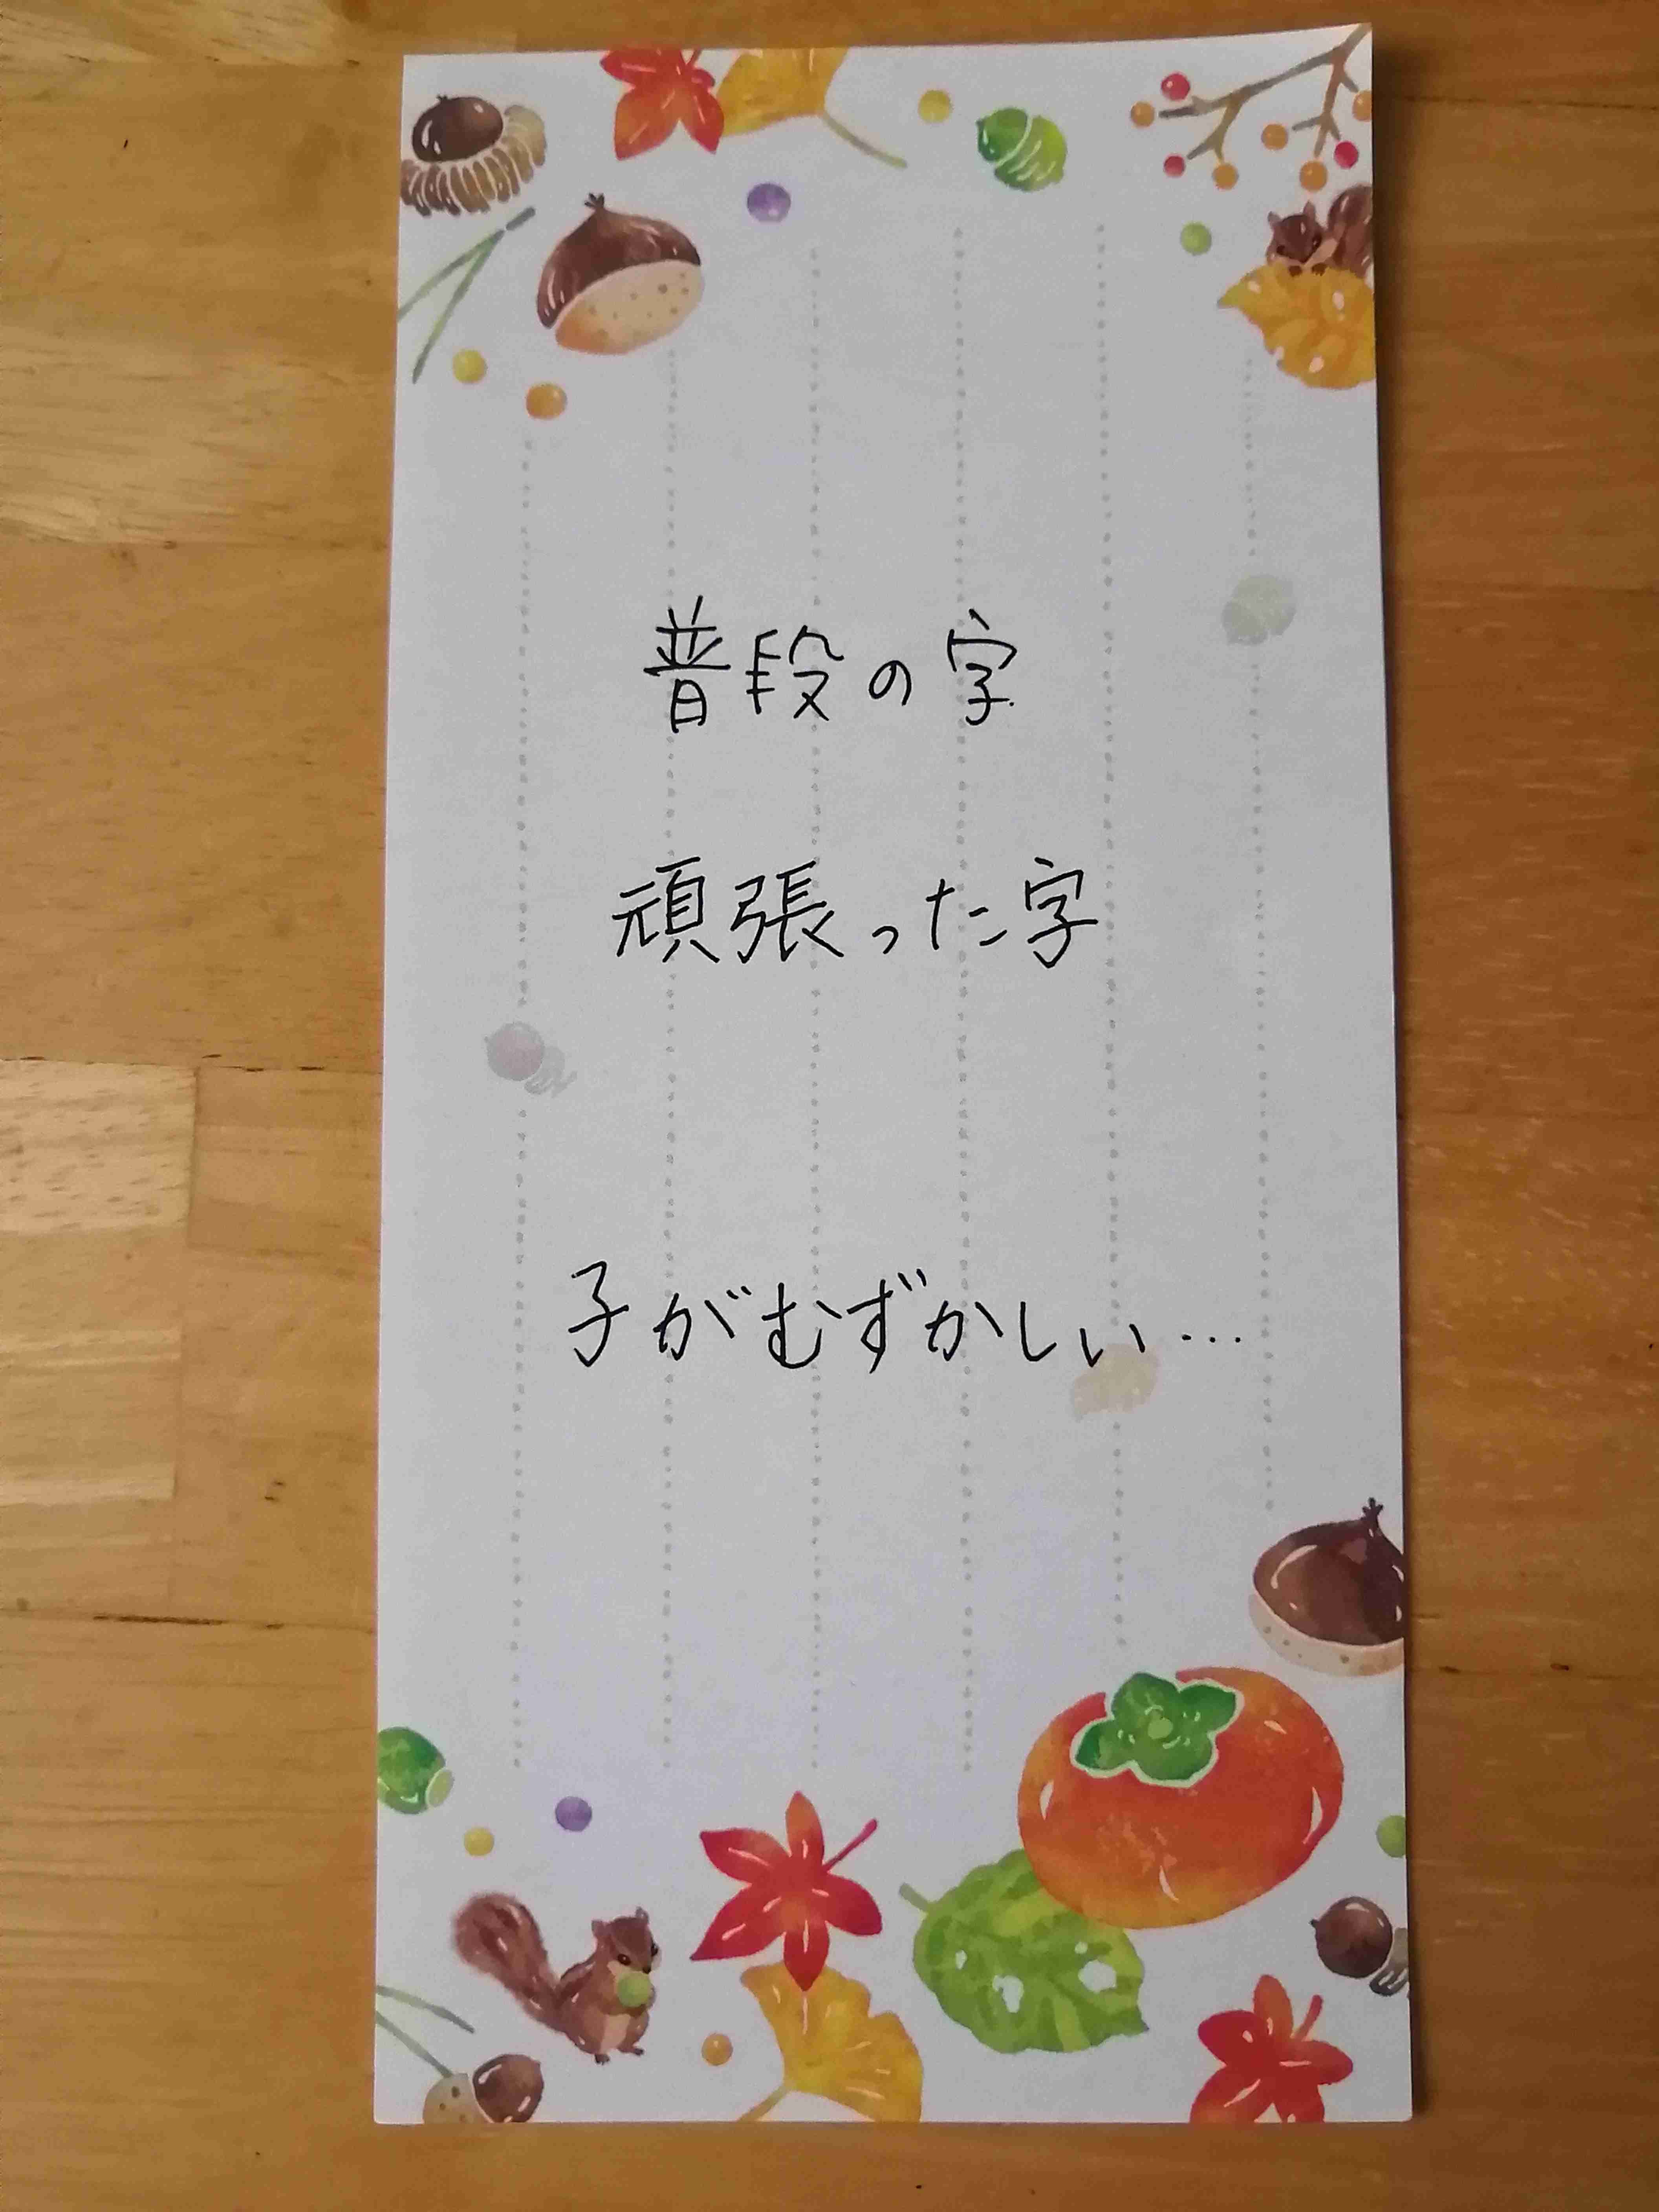 普段の字
頑張った字
子がむずかしい…